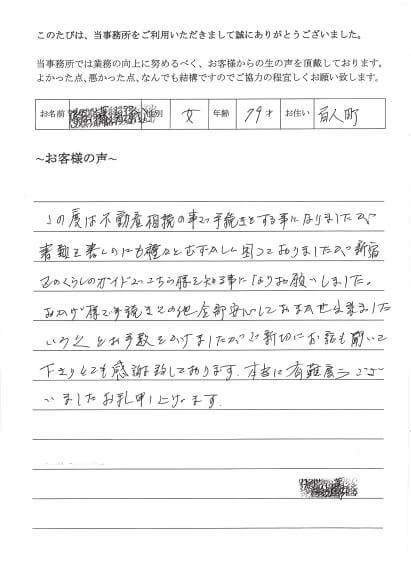 このたびは、当事務所をご利用いただきまして誠にありがとうございました。
当事務所では業務の向上に努めるべく、お客様からの生の声を頂戴しております。
よかった点、悪かった点、なんでも結構ですのでご協力の程宜しくお願い致します。
お名前 性別 女 年齢 79才 お住い 百人町
~お客様の声~
この度は不動産相続の事で手続きをする事になりましたが
書類を書くのにも種々とむずかしく困っておりましたが新宿
区のくらしのガイドでこちら様を知る事になりお願いしました。
おかげ様で手続きその他全部安心しておまかせ出来ました
いろいろとお手数をかけましたがご親切にお話も聞いて
下さりとても感謝致しております。本当に有難うござ
いましたお礼申し上げます。